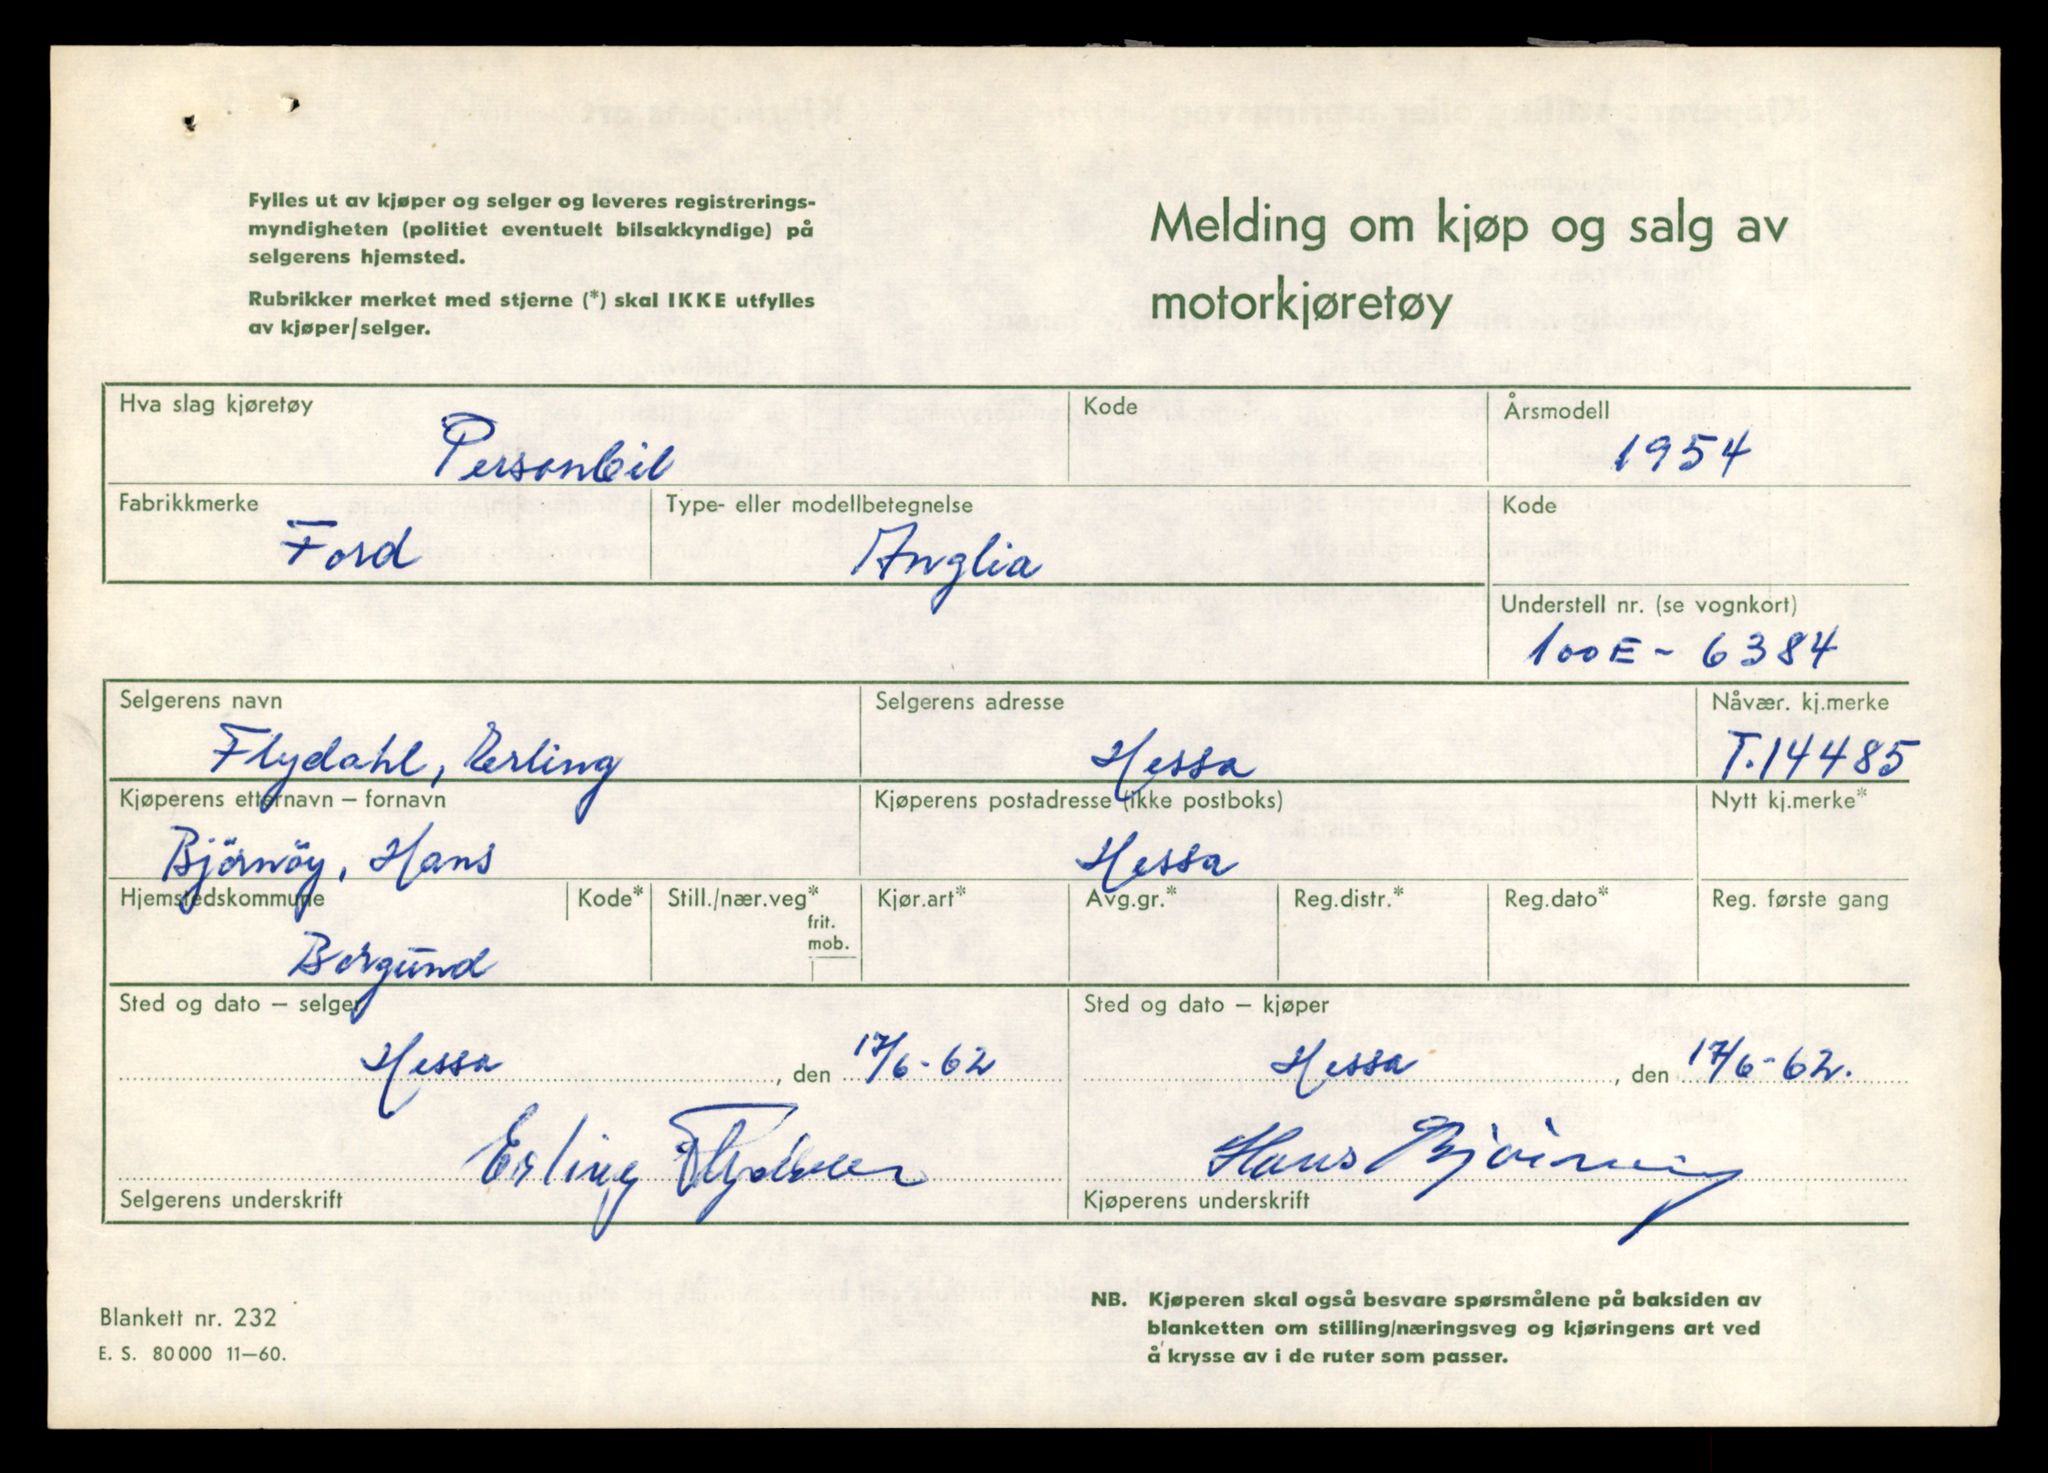 Fylles ut av kjøper og selger og leveres registrerings-
myndigheten (politiet eventuelt bilsakkyndige) på
selgerens hjemsted.
Rubrikker merket med stjerne (*) skal IKKE utfylles
av kjøper/selger.
Melding om kjøp og salg av
motorkjøretøy
Hva slag kjøretøy Kode Årsmodell
Personbil 1954
Fabrikkmerke Type- eller modellbetegnelse Kode
Ford Anglia
Understell nr. (se vognkort)
100E - 6384
Selgerens navn Selgerens adresse Nåvær. kj.merke
Flydahl, Erling Hessa T.14485
Kjøperens etternavn – fornavn Kjøperens postadresse (ikke postboks) Nytt kj.merke*
Björnöy, Hans Hessa
Hjemstedskommune Kode* Still./nær.veg* Kjør.art* Avg.gr.* Reg.distr.* Reg.dato* Reg. første gang
frit.
mob.
Borgund
Sted og dato – selger Sted og dato – kjøper
Hessa, den 17/6-62 Hessa, den 17/6-62.
Erling Flydahl Hans Björnöy
Selgerens underskrift Kjøperens underskrift
Blankett nr. 232
E. S. 80000 11–60.
NB. Kjøperen skal også besvare spørsmålene på baksiden av
blanketten om stilling/næringsveg og kjøringens art ved
å krysse av i de ruter som passer.